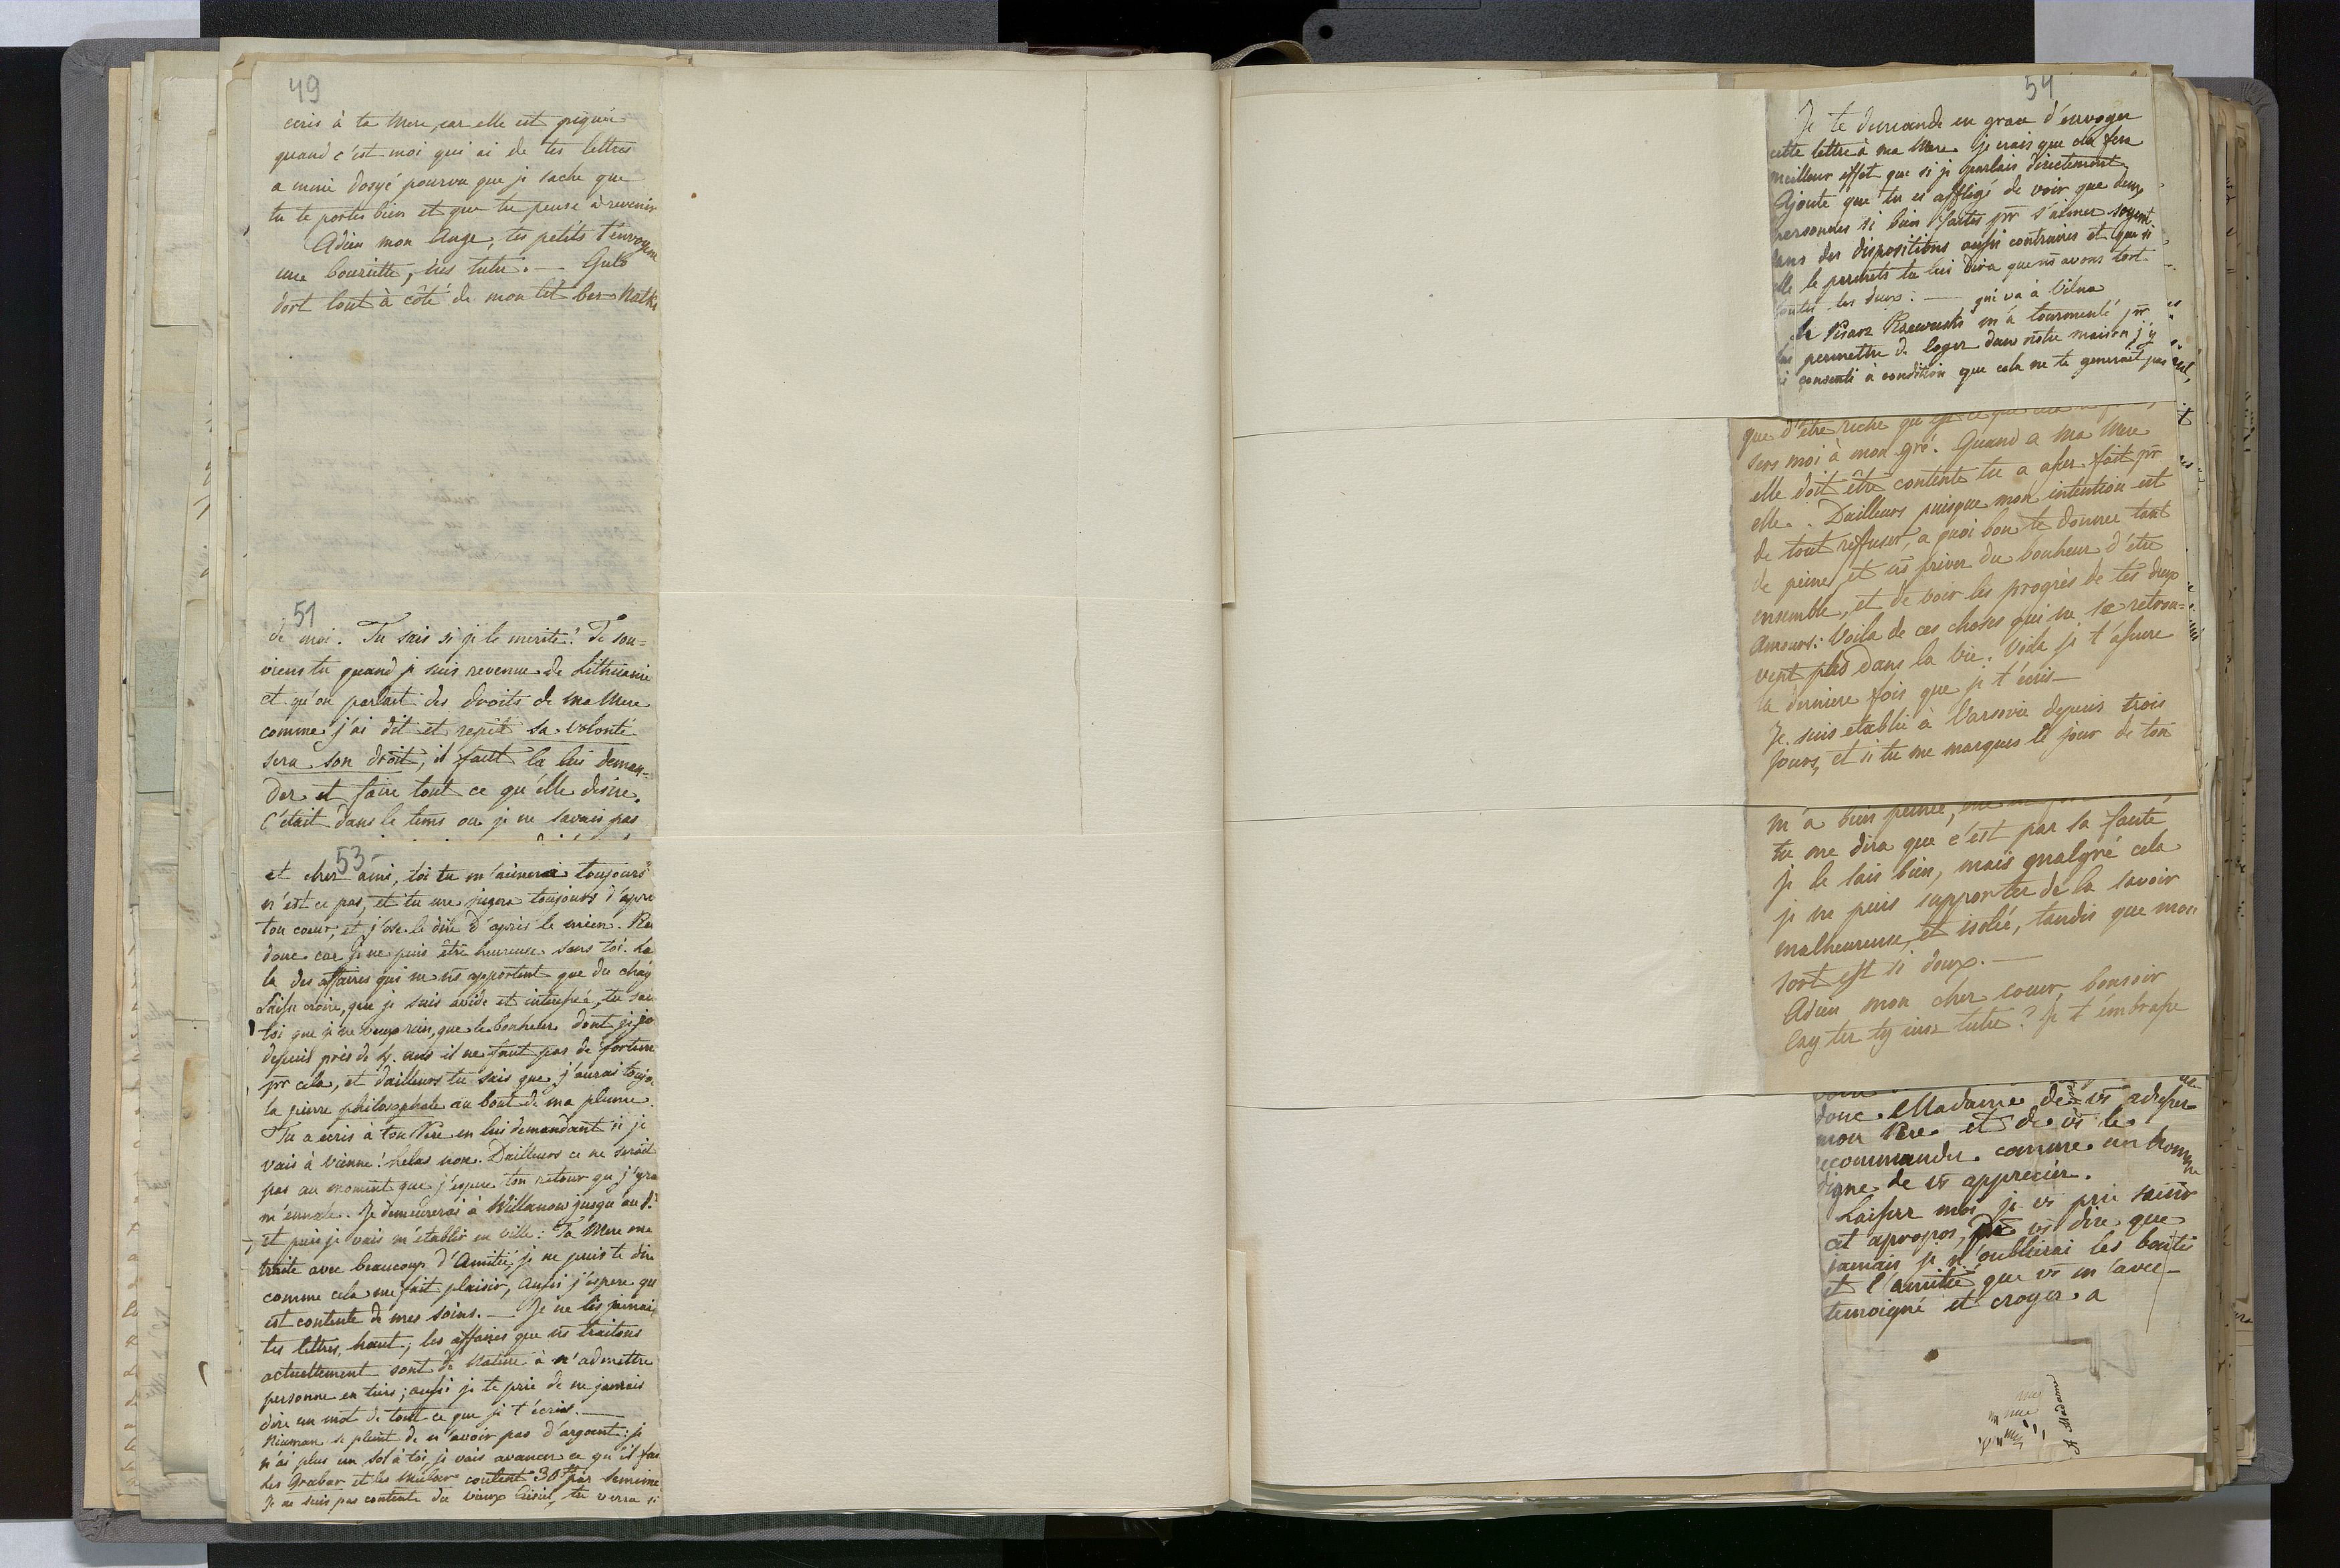 49
ecris à ta Mere, car elle est piquée
quand c'est moi qui ai de tes lettres
a mini dosyć pourvu que je sache que
tu te portes bien et que tu pense à revenir
Adieu mon Ange, tes petits t'envoyent
une bouziette, tutu. — Gulo
dort tout à côté de mon lit bez Matki
51
de moi. Tu sais si je le merite! Te sou=
viens tu quand je suis revenue de Lithuanie
et qu'on parlait des droits de ma Mere
comme j'ai dit et repété sa volonté
sera son droit, il faut la lui deman=
der et faire tout ce qu'elle desire.
C'était dans le tems ou je ne savais pas
53
et cher ami, toi tu m'aimera toujours
n'est ce pas, et tu me jugera toujours d'apre
ton cœur, et j'ose le dire d'après le mien.
donc car je ne puis être heureuse sans toi. La
la des affaires qui ne ns apportent que du chag
Laisse croire, que je suis avide et interessée, tu sai
toi que je ne veux rien, que le bonheur dont je jo
depuis près de 4. ans il ne faut pas de fortune
pr cela, et dailleurs tu sais que j'aurai toujo
la pierre philosophale au bout de ma plume.
Tu a ecris à ton Pere en lui demandant si je
vais à Vienne! helas non. Dailleurs ce ne serait
pas au moment que j'espere ton retour que j'yra
m'. Je demeurerai à Willanow jusqu'au
et puis je vais m'établir en ville: Ta Mere me
traite avec beaucoup d'Amitié, je ne puis te dire
comme cela me fait plaisir, aussi j'espere qu
est contente de mes soins. — Je ne lis jamais
tes lettres, haut; les affaires que ns traitons
actuellement sont de Nature à n'admettre
personne en tiers; aussi je te prie de ne jamais
dire un mot de tout ce que je t'écris. —
se pleint de n'avoir pas d'argent; je
n'ai plus un sol à toi, je vais avancer ce qu'il fau
Les Grabar et les coutent 30# par semaine
Je ne suis pas contente du vieux, tu verra si
54
Je te demande en grace d'envoyer
cette lettre à ma Mere. Je crois que cela fera
meilleur effet que si je parlais directement,
Ajoute que tu es affligé de voir que deux
personnes si bien faites pr s'aimer soyent
dans des dispositions aussi contraires et que si
elle le permets tu lui dira que ns avons tort
toutes les deux: — qui va à Vilna
Le Pisarz Rzewuski m'a tourmenté pr
lui permettre de loger dans notre maison j'y
ai consenti à condition que cela ne te generait pas
que d'être riche qu'est ce que
sers moi à mon gré. Quand a ma Mere
elle doit être contente tu a assez fait pr
elle. Dailleurs puisque mon intention est
de tout reffuser, a quoi bon te donner tant
de peine, et ns priver du bonheur d'être
ensemble, et de voir les progrès de tes deux
Amours: Voila de ces choses qui ne se retrou=
vent plus dans la vie. Voila je t'assure
la derniere fois que je t'écris —
Je suis etablie à Varsovie depuis trois
jours, et si tu me marques le jour de ton
m'a bien peinée,
tu me dira que c'est par sa faute
je le sais bien, mais malgré cela
je ne puis supporter de la savoir
malheureuse, et isolée, tandis que mon
sort est si doux. —
Adieu mon cher cœur, bonsoir
Czy tez ty tutu? Je t'embrasse
donc Madame de vs adresser
mon Pere et de vs le
recommander comme un homme
digne de vs apprecier.
Laissez moi je vs prie saisir
cet apropos, vs dire que
jamais je n'oublierai les bontés
et l'amitié que vs m'avez
temoigné et croyez a
A Madame